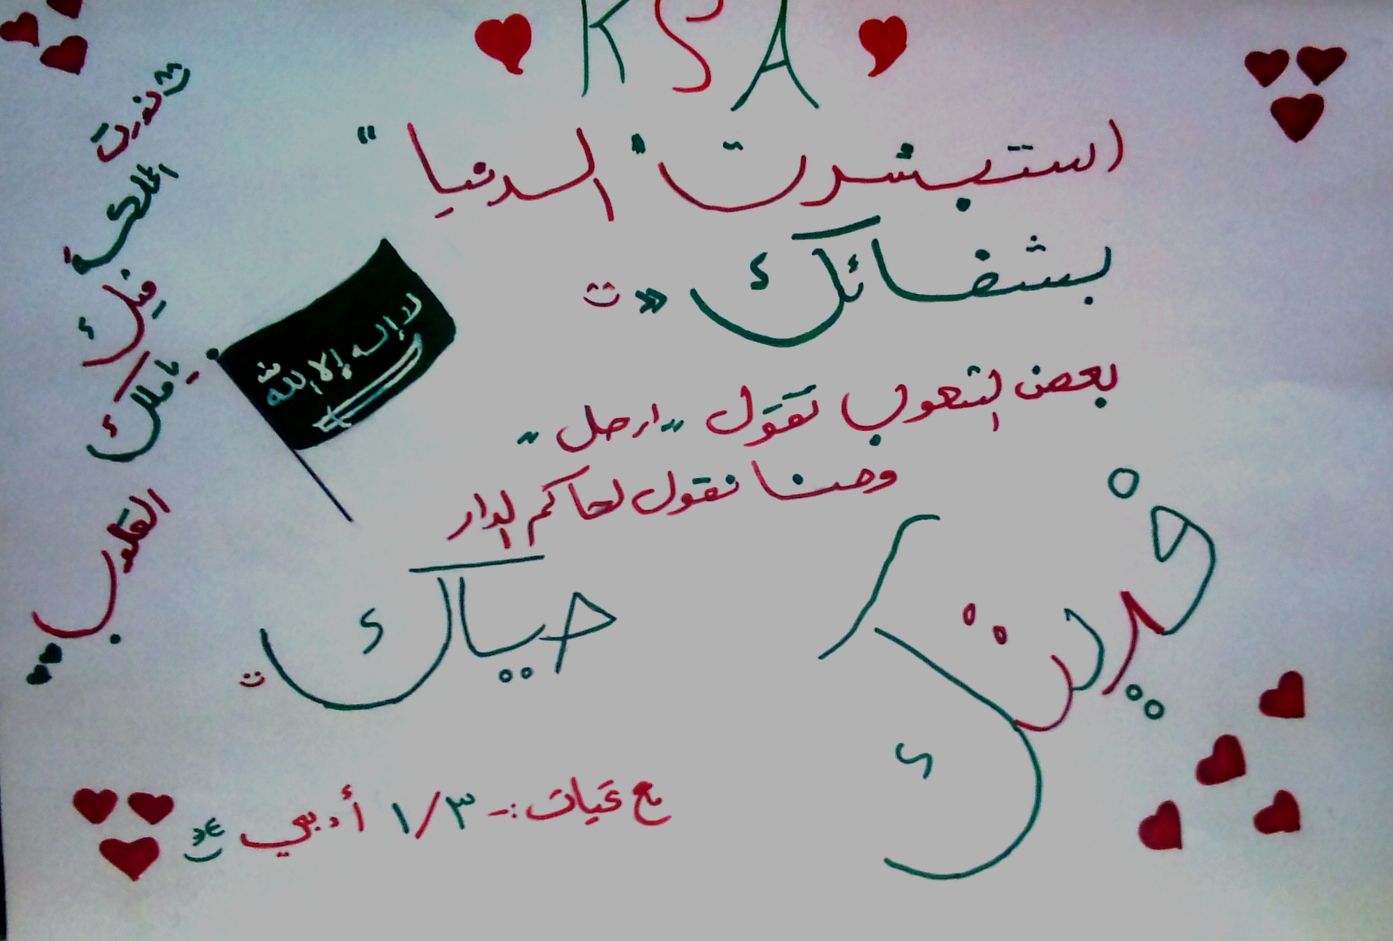 KSA
" استبشرت الدنيا "
بشفائك »
بعض الشعوب تقول " ارحل "
وحنا نقول لحاكم الدار
حياك
فديتك
لا إله إلا الله
نورت
المملكة
فيك
يا ملك
القلوب
مع تحيات :- ٣/١ أدبي